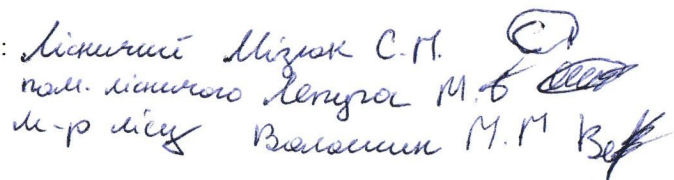 : Лісничий Мізюк С.М.
пом. лісничого Лепуга М.В
м-р лісу Волошин М.М